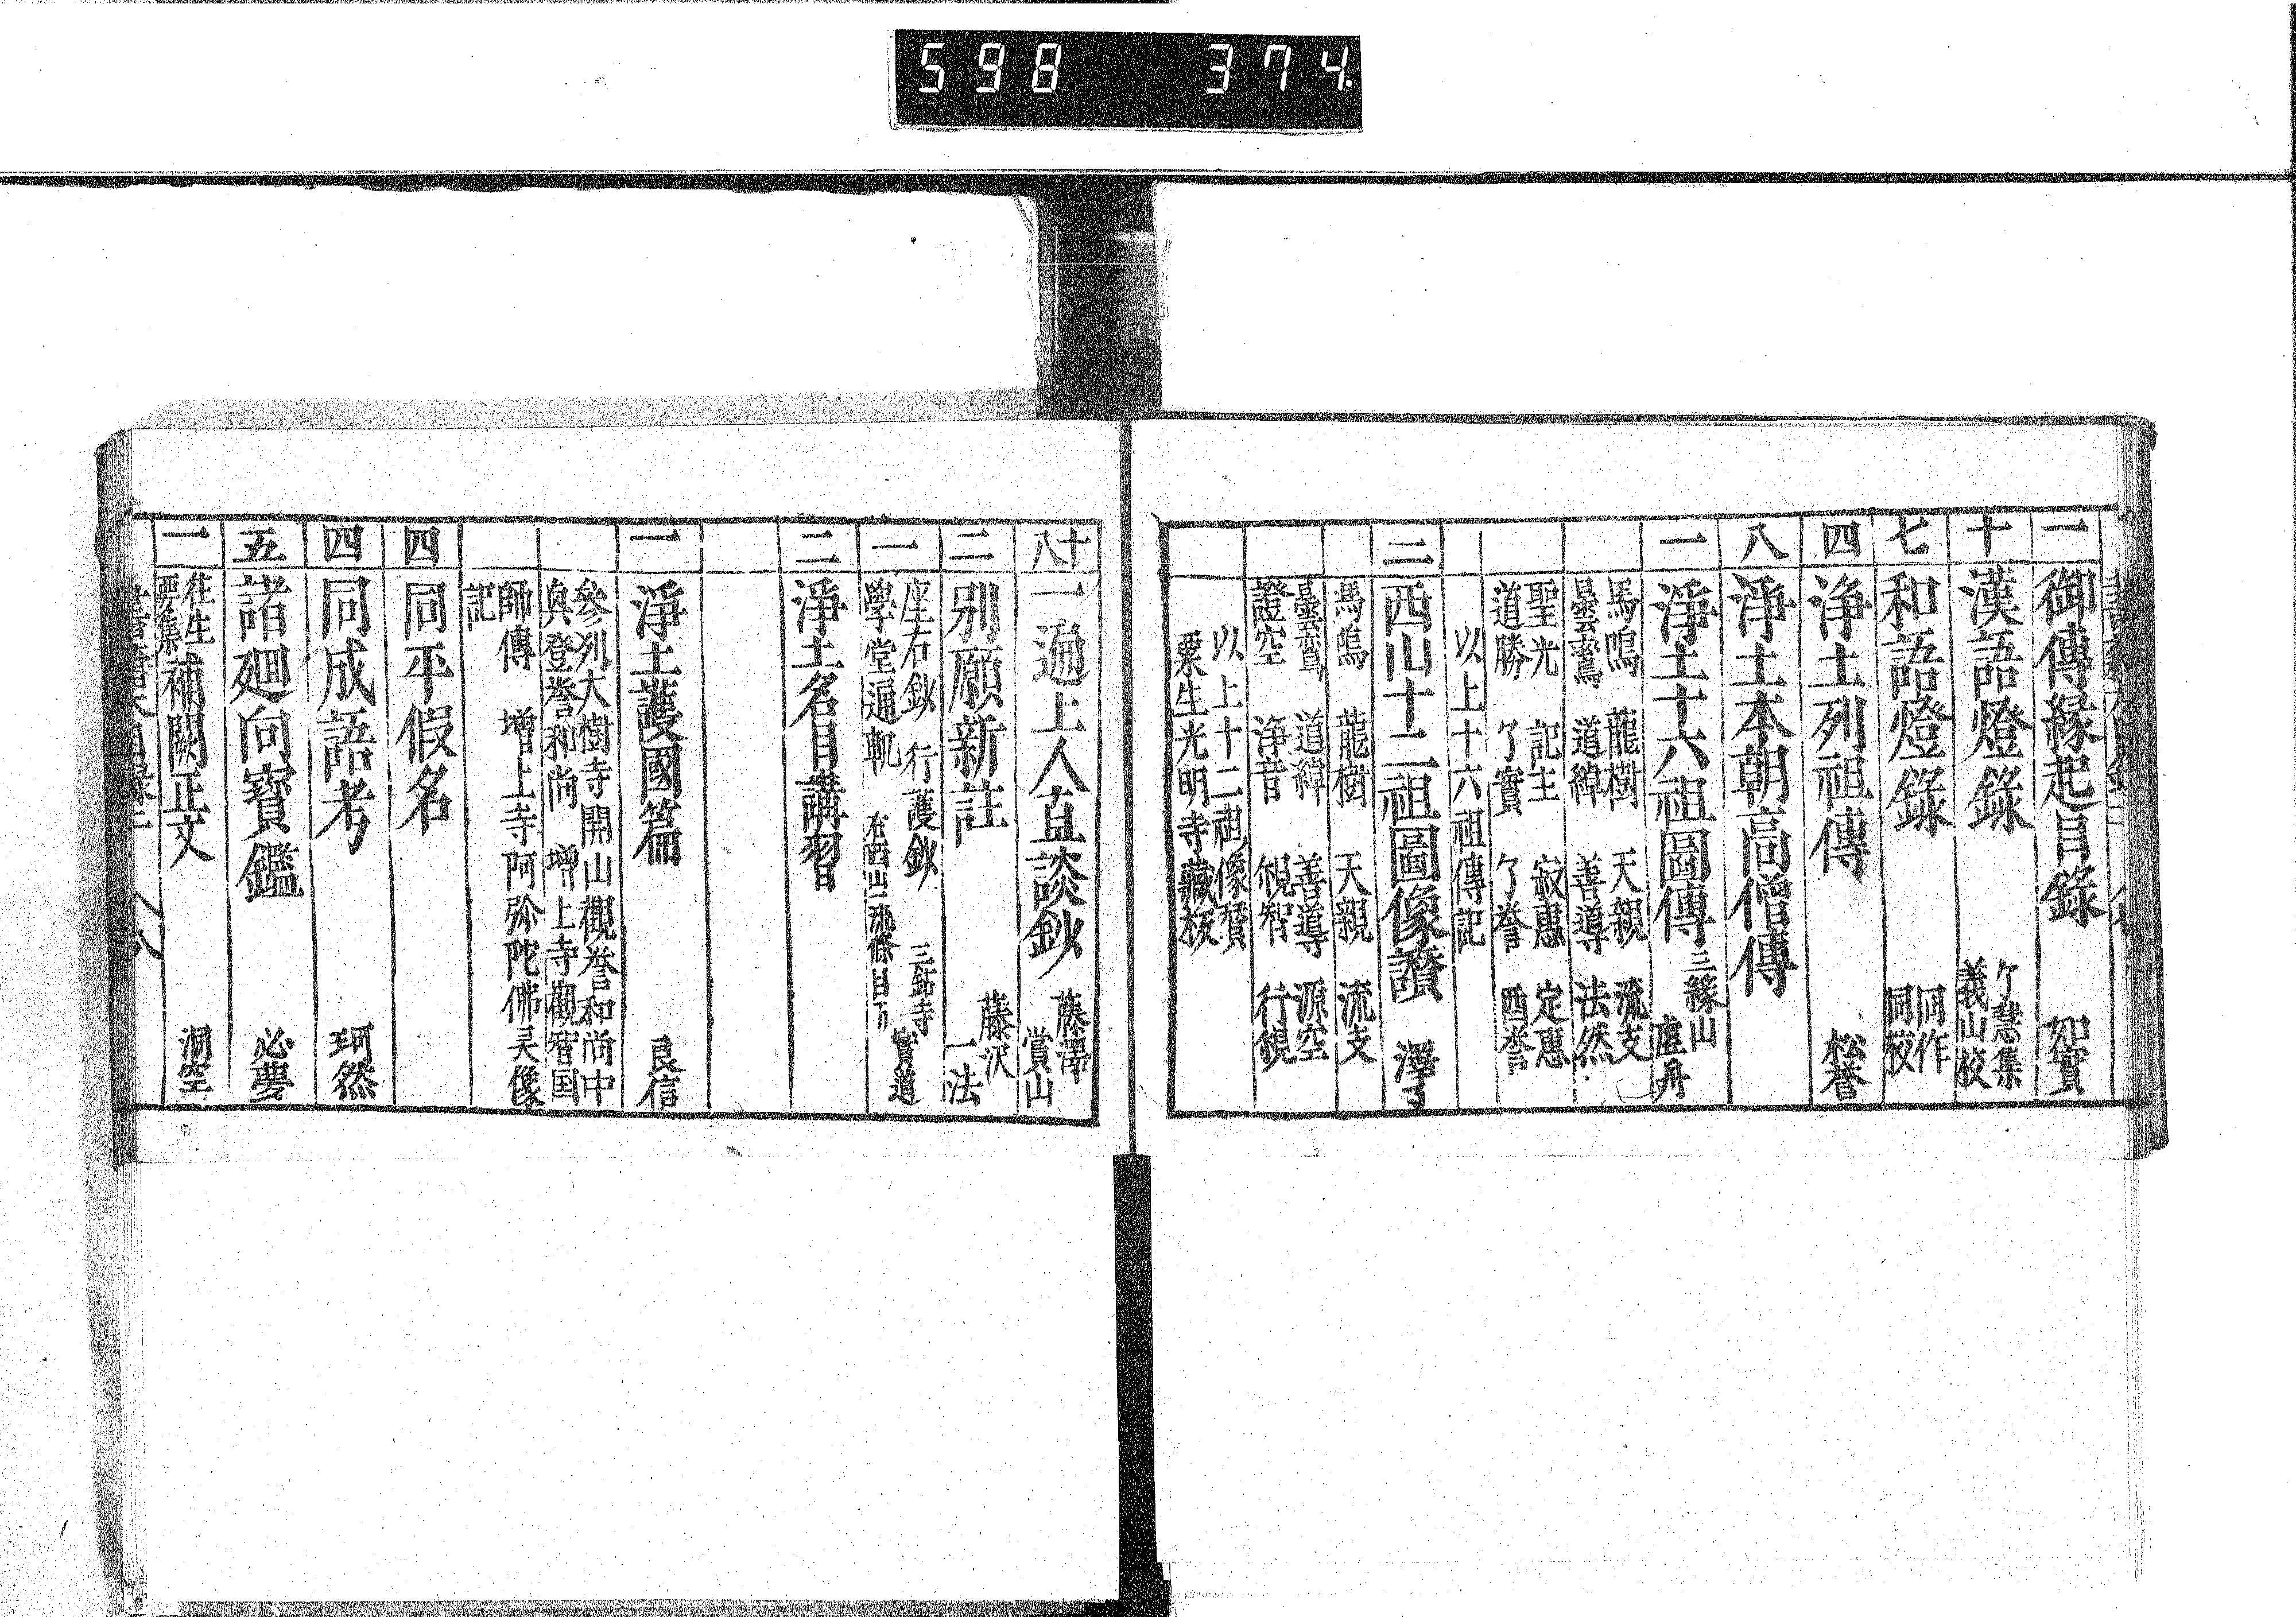 598 374
一 御傳緣起目錄 如實
十 漢語燈錄 了慧集 義山校
七 和語燈錄 同作 同校
四 浄土列祖傳 松誉
八 淨土本朝高僧傳
一 淨土十六祖圖傳 三緣山
馬鳴 龍樹 天親 流支
曇鸞 道綽 善導 法然
聖光 記主 寂惠 定惠
道勝 了實 了誉 酉誉
以上十六祖傳記
二 西山十二祖圖像讚 澤了
馬鳴 龍樹 天親 流支
曇鸞 道綽 善導 源空
證空 浄音 観智 行観
以上十二祖像賛
粟生光明寺藏板
十八 一遍上人直談鈔 藤澤 賞山
二 別願新註 藤沢 一法
一 座右鈔 行護鈔 三鈷寺
學堂通軌 右西山流條目
二 淨土名目講習
一 淨土護國篇 良信
參列大樹寺開山觀誉和尚中
奥登誉和尚 增上寺觀智国
師傳 增上寺阿弥陀佛㚑像
記
四 同平假名
四 同成語考 珂然
五 諸廻向寶鑑 必夢
一 往生要集補闕正文 洞空